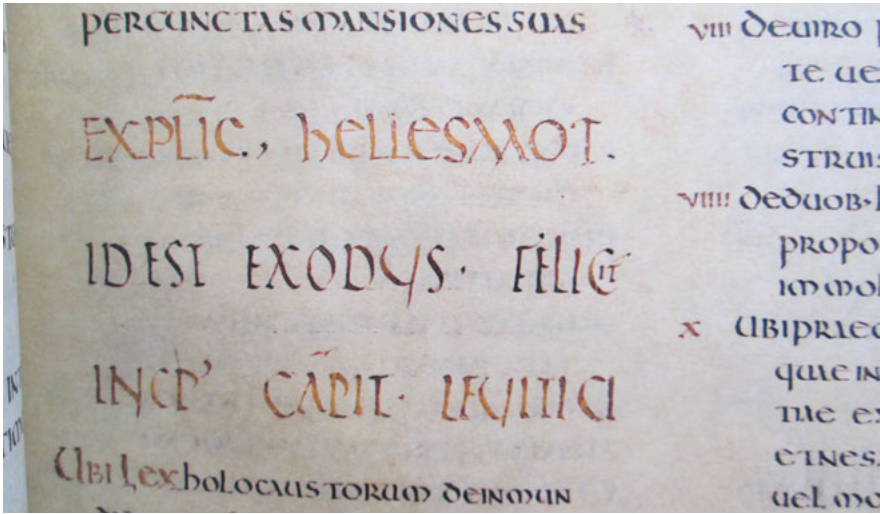 PERCUNCTAS MANSIONES SUAS
EXPLIC., hELLESMOT.
IDEST EXODUS. FELICIT
INCP' CAPIT. LEUITICI
UBI Lex hOLOCAUSTORUM DEINMUN
VIII DEUIRO
TE UE
CONTIN
STRUIS
VIIII DEDUOB·
PROPO
IMMOL
X UBIPRAEC
QUAE IN
TAE EX
ETNES
UEL MO